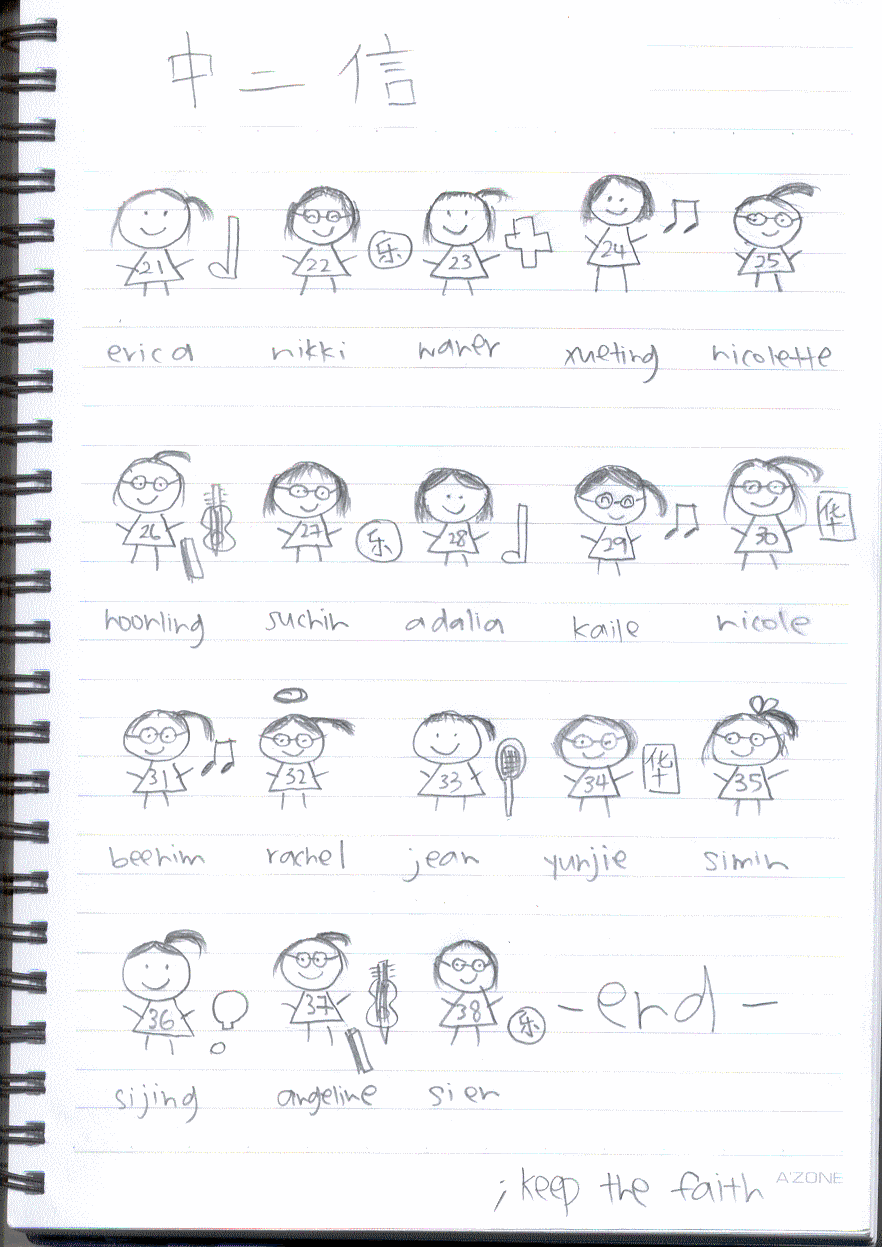 中二信
21 22 乐 23 24 25
erica nikki waner xueting nicolette
26 27 乐 28 29 30 华
hoonling suchin adalia kaile nicole
31 32 33 34 华 35
beehim rachel jean yunjie simin
36 37 38 乐 -end-
sijing angeline sier
; keep the faith A'ZONE